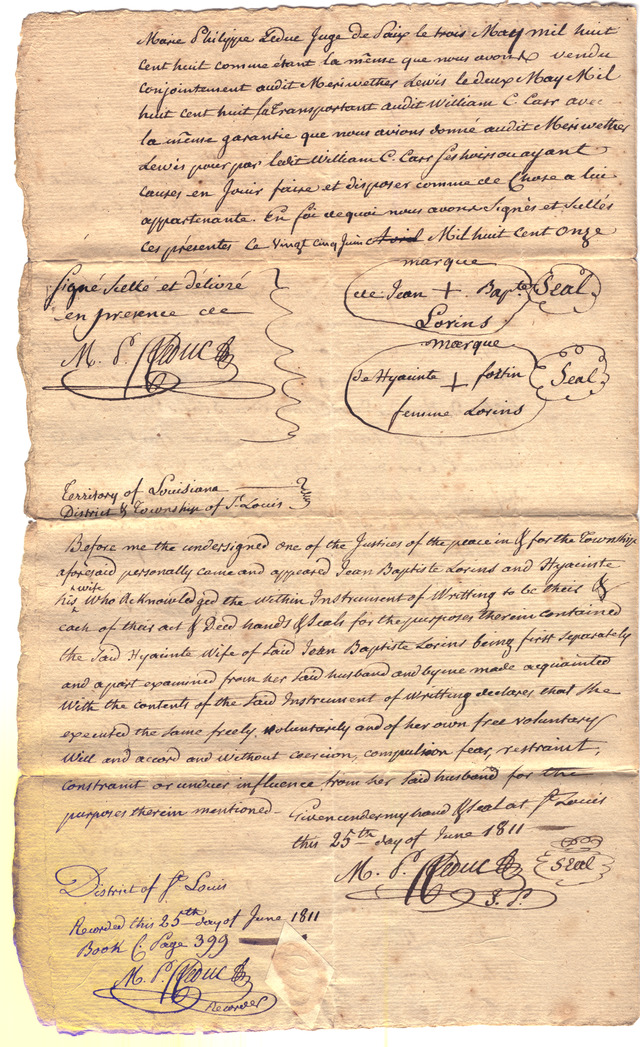 Marie Philippe Leduc Juge de Paix le trois May mil huit
Cent huit comme étant la même que nous avons vendu
Conjointement audit Meriwether Lewis le deux May Mil
huit Cent huit la Transportant audit William C. Carr avec
la même garantie que nous avions donné audit Meriwether
Lewis pour par ledit William C. Carr ses hoirs ou ayant
causes en Jouir faire et disposer comme de Chose a lui
appartenante. En foi de quoi nous avons Signés et Scellés
ces présentes ce Vingt cinq Juin Avril Mil huit Cent Onze
Signé Scellé et délivré
en presence de
M. P. Leduc
marque
de Jean + Bapte Seal
Lorins
marque
de Hyainte + fortin Seal
femme Lorins
Territory of Louisiana
District & Township of St. Louis
Before me the undersigned one of the Justices of the peace in & for the Township
aforesaid personally came and appeared Jean Baptiste Lorins and Hyacinte
his wife Who Acknowledged the within Instrument of Writting to be their &
each of their act & Deed hands & Seals for the purposes therein contained
the Said Hyainte Wife of Said Jean Baptiste Lorins being first Separately
and apart examined from her Said husband and by me made acquainted
With the contents of the Said Instrument of Writting declares that She
executed the same freely, voluntarily and of her own free voluntary
Will and accord and without coersion, compulsion fear, restraint,
constraint or undue influence from her Said husband for the
purposes therein mentioned - Given under my hand & Seal at St. Louis
this 25th day of June 1811
M. P. Leduc Seal
J. P.
District of St. Louis
Recorded this 25th day of June 1811
Book C. Page 399
M. P. Leduc
Recorder